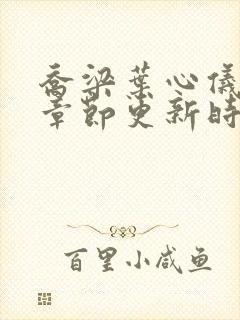 乔梁葉心儀
章節更新時
百里小咸鱼